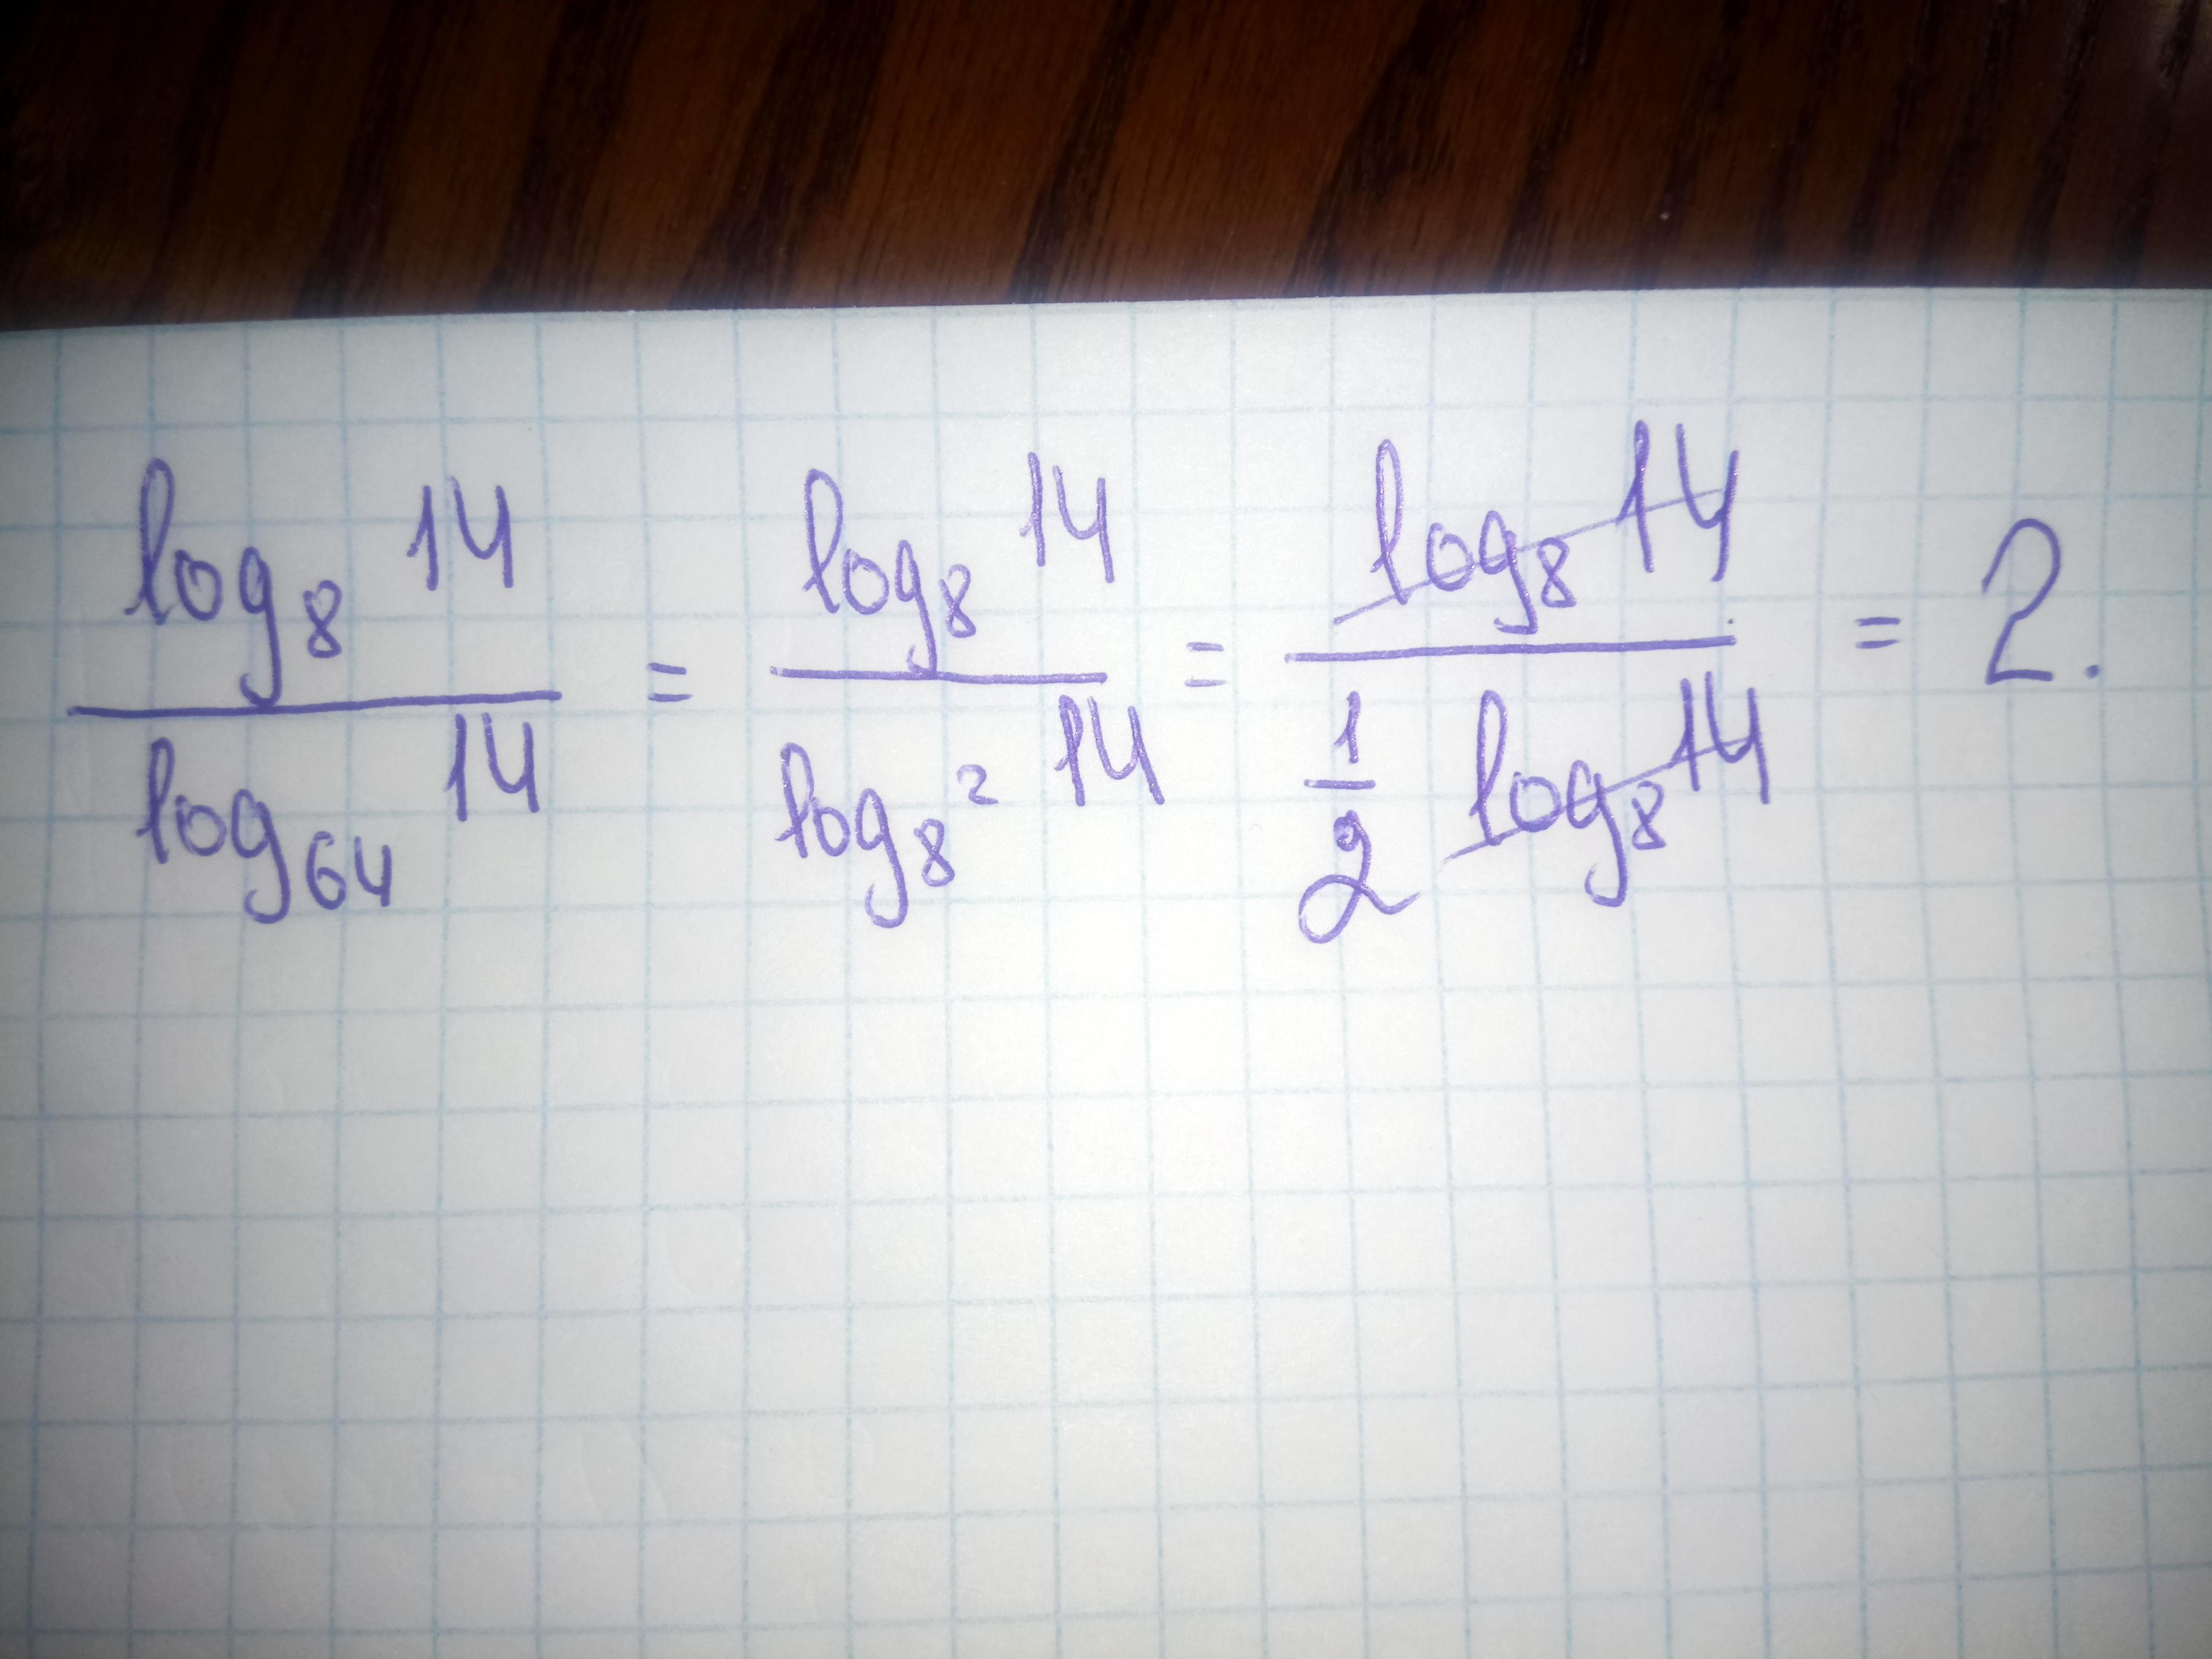 log₈ 14 / log₆₄ 14 = log₈ 14 / log₈² 14 = log₈ 14 / 1/2 log₈ 14 = 2.